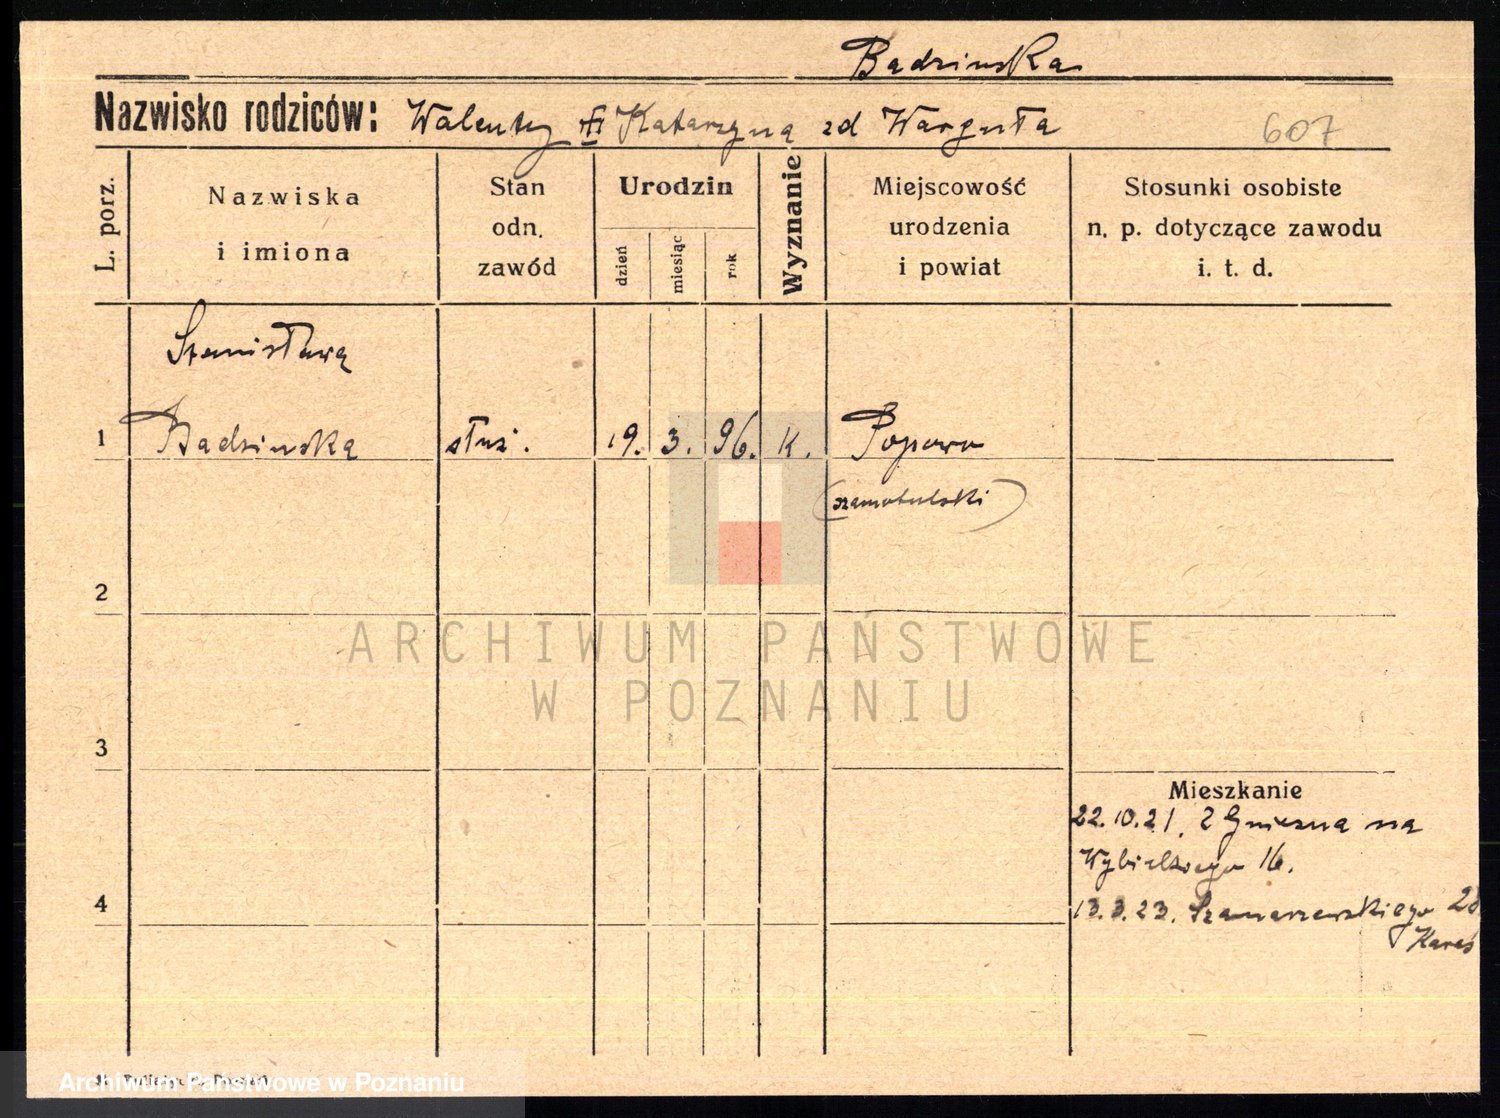 Bądzińska
Nazwisko rodziców: Walenty Katarzyna zd Warguła 607
L. porz.
Nazwiska
i imiona
Stan
odn.
zawód
Urodzin
dzień
miesiąc
rok
Wyznanie
Miejscowość
urodzenia
i powiat
Stosunki osobiste
n. p. dotyczące zawodu
i. t. d.
Stanisława
1 Bądzińska służ. 19. 3. 96. K. Popowo
(szamotulski)
2
3
4
Mieszkanie
22.10.21. z Gniezna na
Wybickiego 16.
13.3.23. Szamarzewskiego
ARCHIWUM PAŃSTWOWE
W POZNANIU
Archiwum Państwowe w Poznaniu